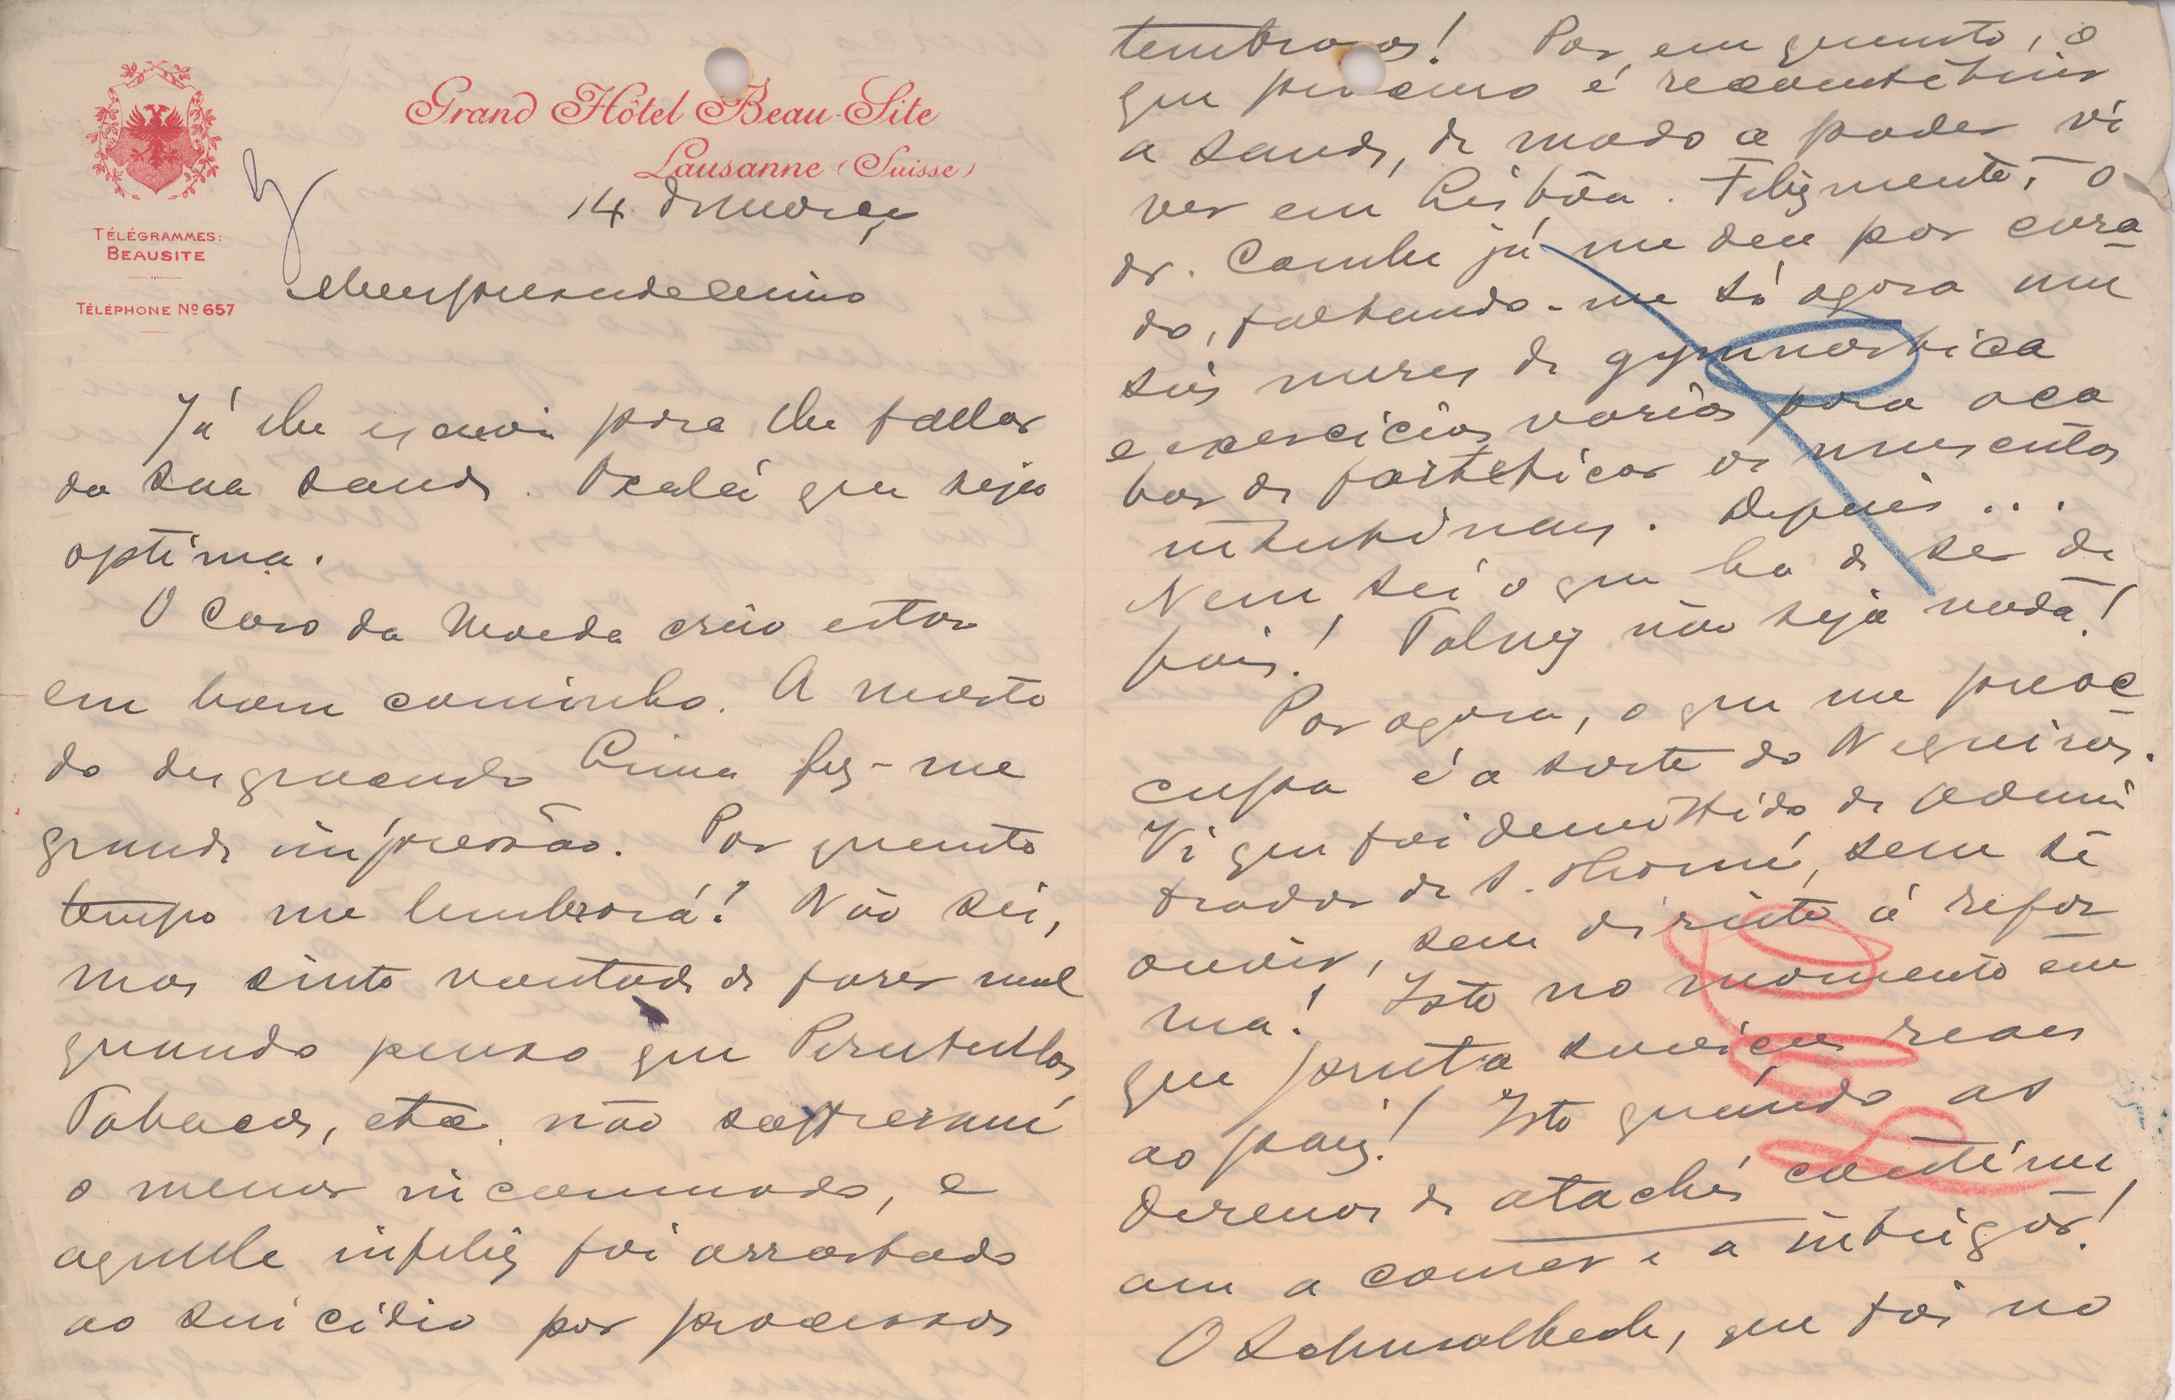 Grand Hôtel Beau-Site
Lausanne (Suisse)
TÉLÉGRAMMES:
BEAUSITE
TÉLÉPHONE Nº 657
14 de março
Meu presadissimo
Já lhe escrevi para lhe fallar
da sua saude. Oxalá que seja
optima.
O caso da Moeda creio estar
em bom caminho. A morte
do desgraçado Lima fez-me
grande impressão. Por quanto
tempo me lembrará? Não sei,
mas sinto vontade de fazer mal
quando penso que
Tabacos, etc. não soffreram
o menor incommodo, e
aquelle infeliz foi arrastado
ao suicidio por processos
tenebrosos! Por em quanto, o
que preciso é reconstituir
a saude, de modo a poder vi
ver em Lisbôa. Felizmente, o
dr. Combe já me deu por cura
do, faltando-me só agora uns
seis mezes de gymnastica
e exercicios varios para aca
bar de fortificar os musculos
intestinaes. Depois...
Nem sei o que ha de ser de
pois! Talvez não seja nada!
Por agora, o que me preoc
cupa é a sorte do Negreiros.
Vi que foi demittido de admi
trador de S. Thomé, sem sê
ouvir, sem direito á refor
ma! Isto no momento em
que presta serviços reaes
ao paiz! Isto quando as
dezenas de attachés continu
am a comer e a intrigar!
O Schwalbach, que foi no